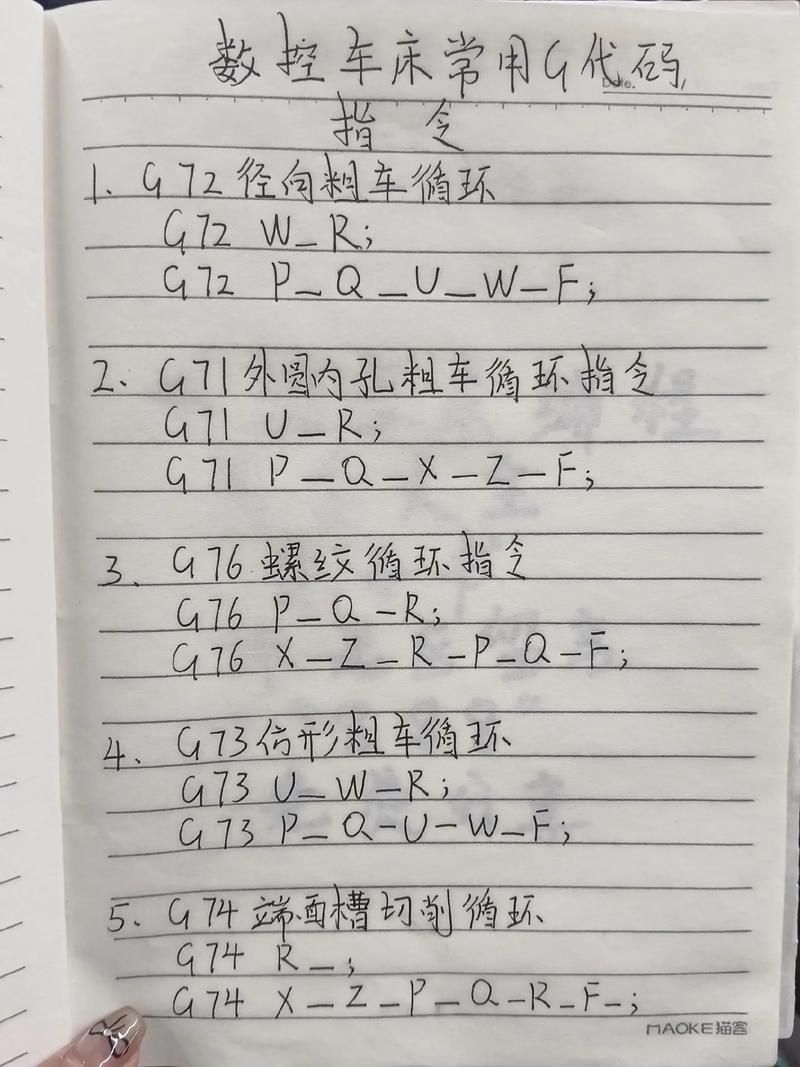 数控车床常用G代码
Date.
指令
1、G72径向粗车循环
G72 W_R;
G72 P_Q_U_W_F;
2、G71外圆内孔粗车循环指令
G71 U_R;
G71 P_Q_X_Z_F;
3、G76螺纹循环指令
G76 P_Q_R;
G76 X_Z_R_P_Q_F;
4、G73仿形粗车循环
G73 U_W_R;
G73 P_Q_U_W_F;
5、G74端面槽切削循环
G74 R_;
G74 X_Z_P_Q_R_F_;
MAOKE猫客